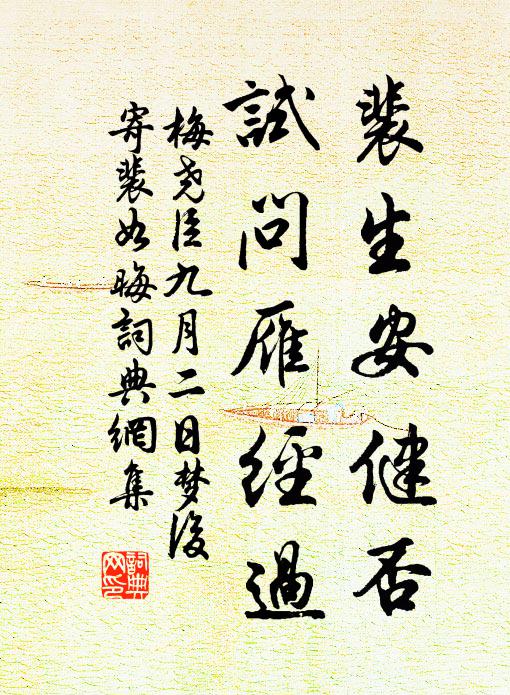 裴生安健否
試問雁經過
梅堯臣九月二日梦後
寄裴如晦詞典網集
詞典
网印